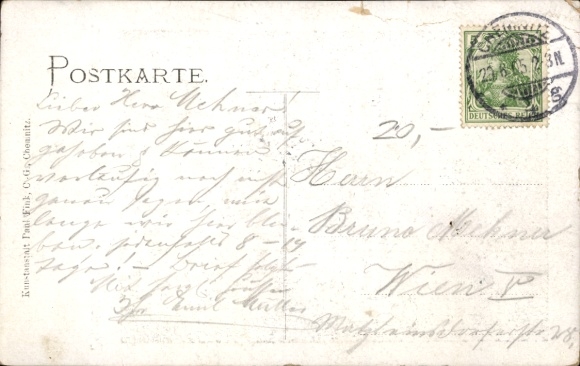 POSTKARTE.
Lieber Herr Mehner!
Wir sind hier gut auf-
gehoben & können
vorläufig noch nicht
genau sagen, wie
lange wir hier blei-
ben. jedenfalls 8-14
Tage! – Brief folgt
Mit herzl.
Ihr Emil Müller
20,-
Herrn
Bruno Mehner
Wien V
Matzleinsdorferstr
Kunstanstalt Paul Fink, C.-G., Chemnitz.
CHEMNITZ
DEUTSCHES REICH